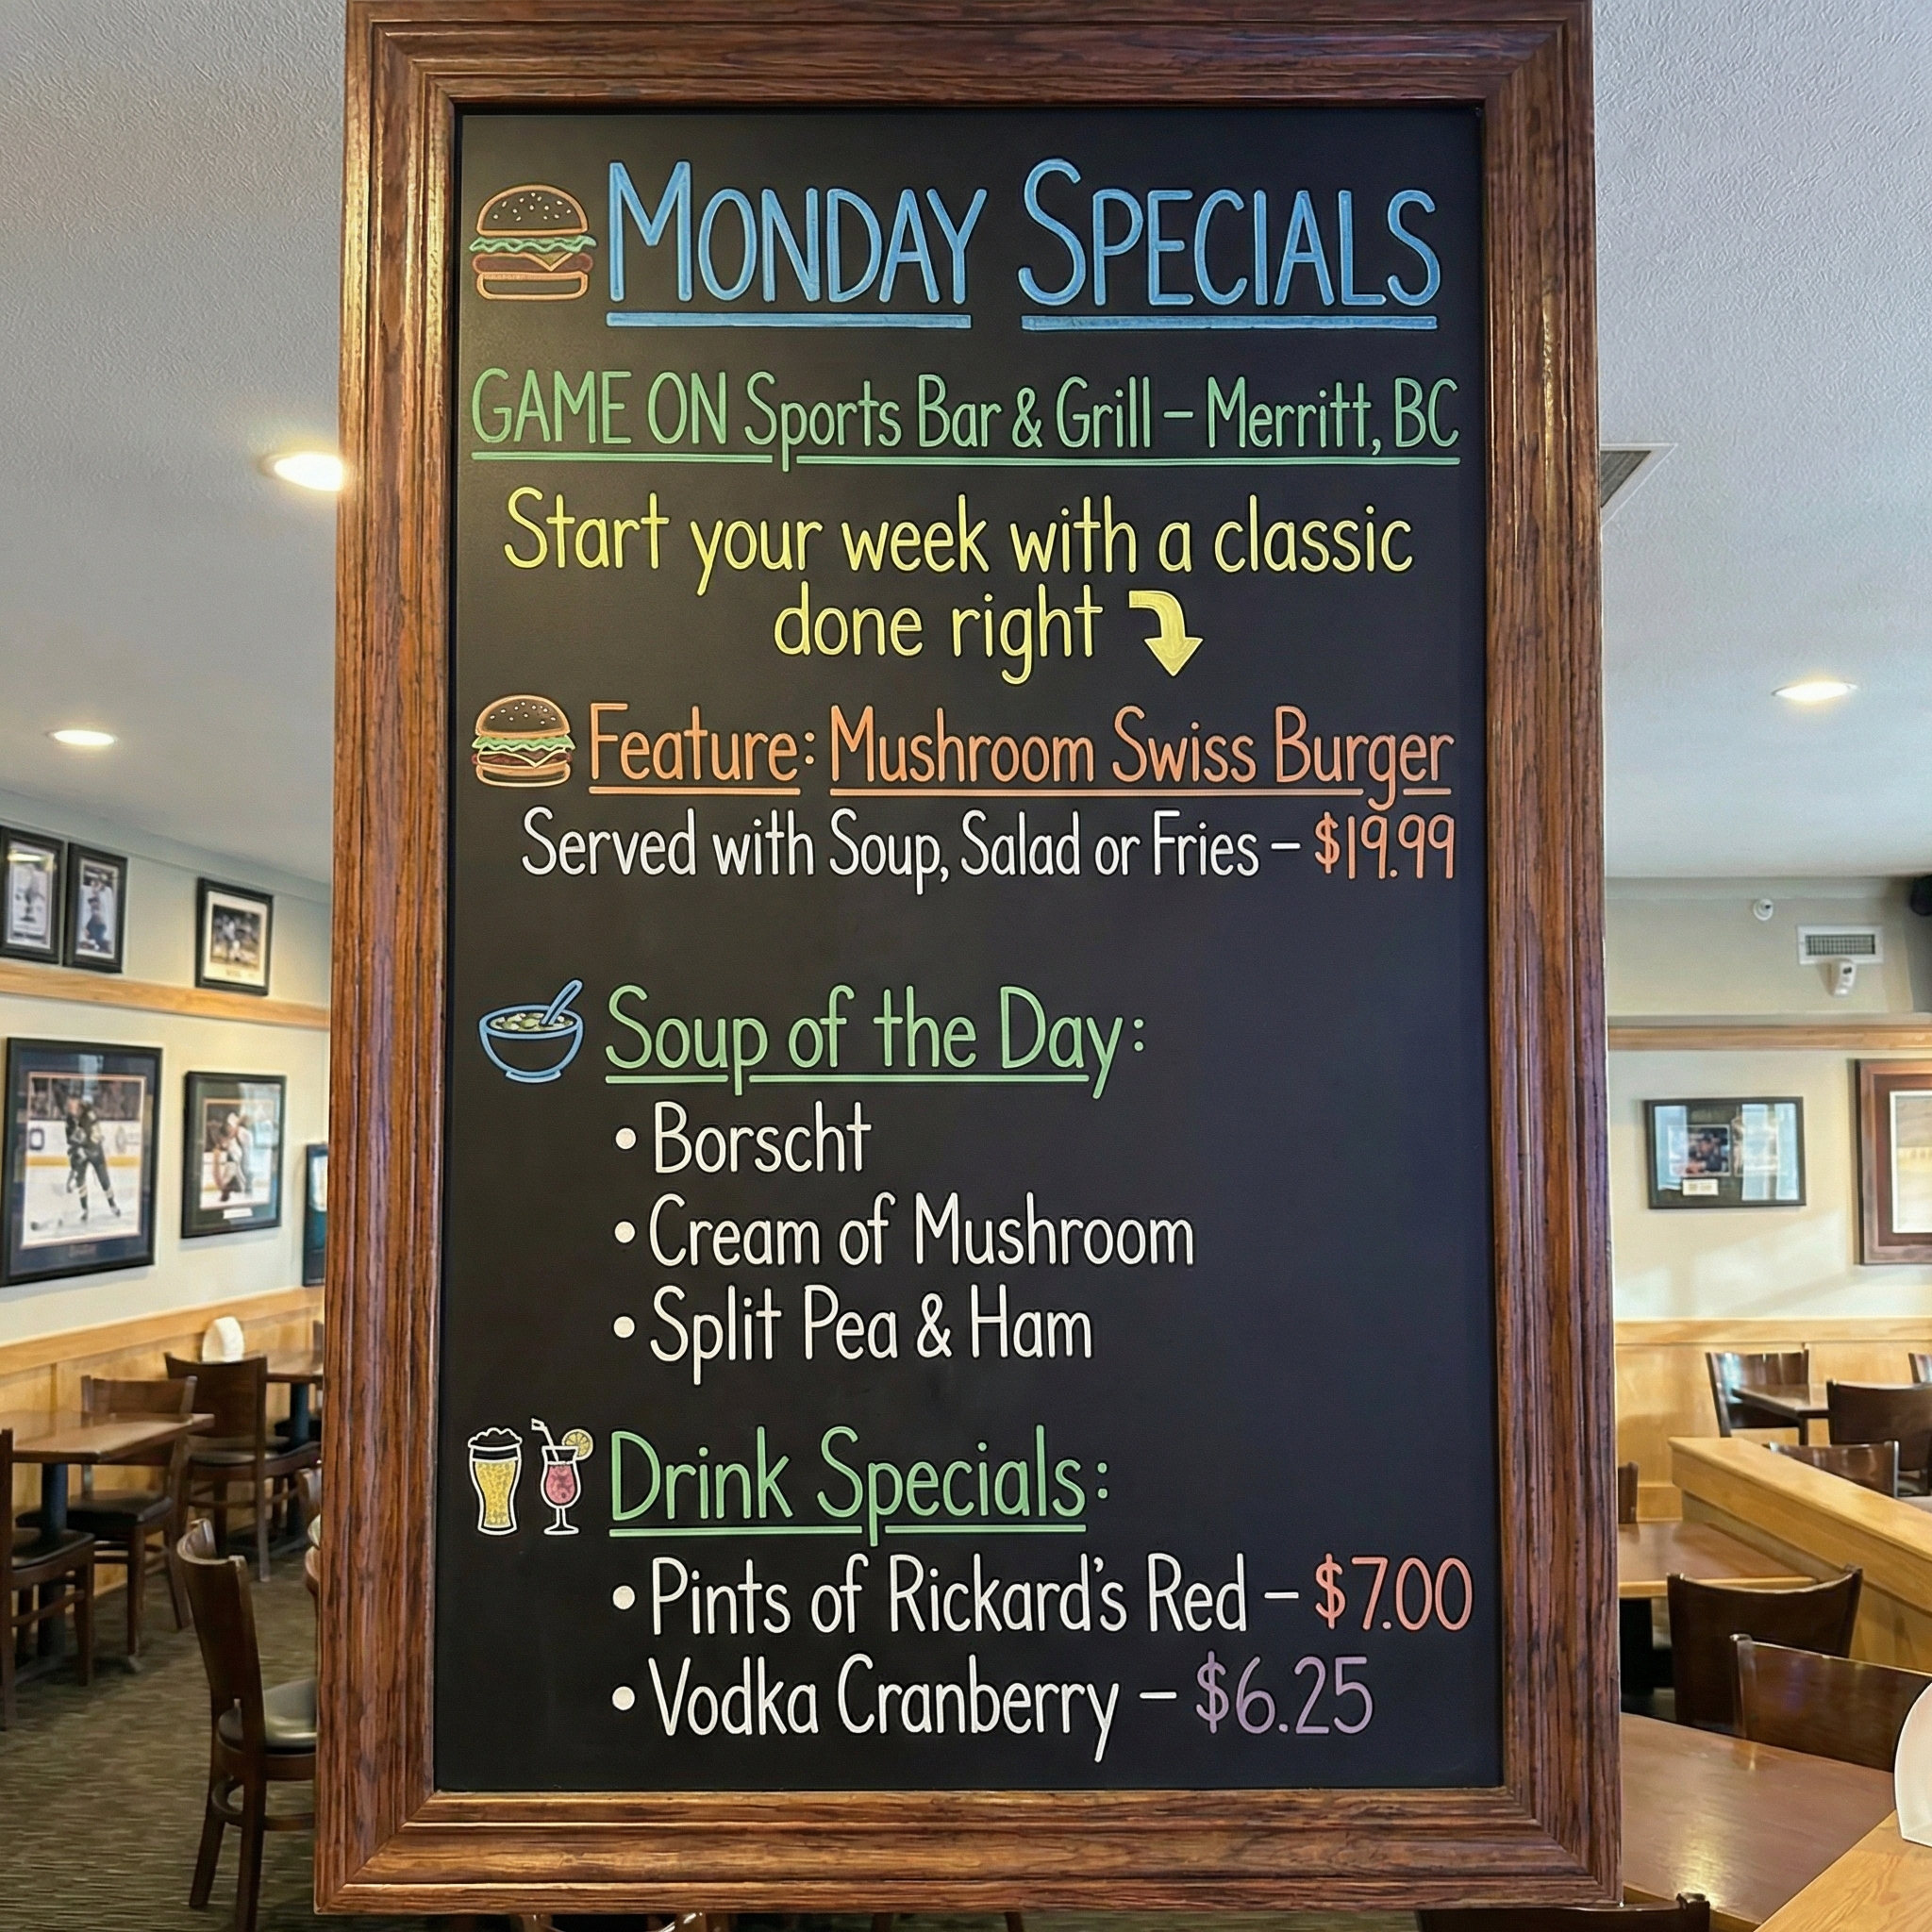 MONDAY SPECIALS
GAME ON Sports Bar & Grill – Merritt, BC
Start your week with a classic
done right
Feature: Mushroom Swiss Burger
Served with Soup, Salad or Fries – $19.99
Soup of the Day:
• Borscht
• Cream of Mushroom
• Split Pea & Ham
Drink Specials:
• Pints of Rickard's Red – $7.00
• Vodka Cranberry – $6.25